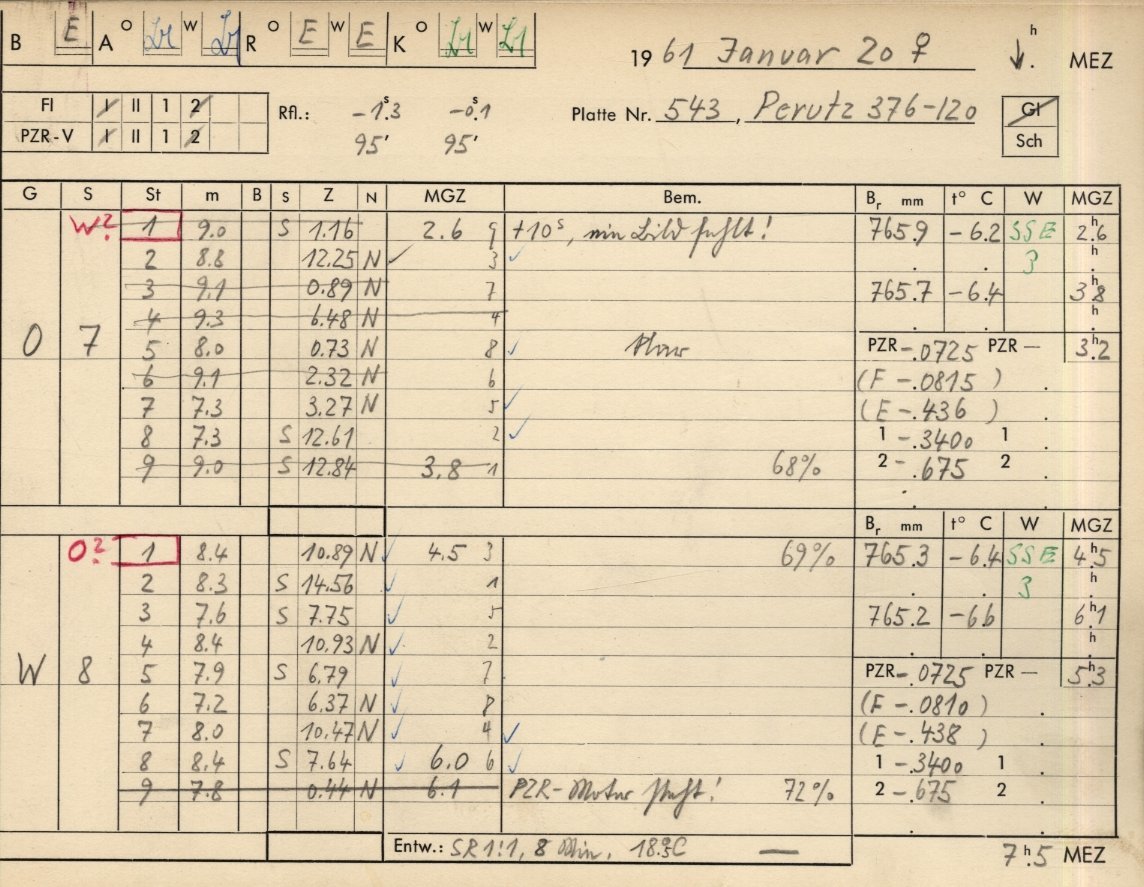 B E A O Lr W Lr R O E W E K O Lr W Lr
19 61 Januar 20 ♀ h MEZ
FI I II 1 2
PZR-V I II 1 2
Rfl.: -1.ˢ3 -0.ˢ1
95' 95'
Platte Nr. 543, Perutz 376-120
Gl
Sch
G S St m B S Z N MGZ Bem. Bᵣ mm t° C W MGZ
W? 1 9.0 S 1.16 2.6 9 +10ˢ, ein Bild fehlt! 765.9 -6.2 SSE 2ʰ.6
2 8.8 12.25 N ✓ 3 ✓ 3 h
3 9.1 0.89 N 7 765.7 -6.4 3ʰ.8
4 9.3 6.48 N 4 h
O 7 5 8.0 0.73 N 8 ✓ PZR -.0725 PZR — 3ʰ.2
6 9.1 2.32 N 6 (F -.0815 )
7 7.3 3.27 N 5 ✓ (E -.436 )
8 7.3 S 12.61 2 ✓ 1 -.3400 1
9 9.0 S 12.84 3.8 1 68% 2 -.675 2
Bᵣ mm t° C W MGZ
O? 1 8.4 10.89 N ✓ 4.5 3 69% 765.3 -6.4 SSE 4ʰ.5
2 8.3 S 14.56 ✓ 1 3 h
3 7.6 S 7.75 ✓ 5 765.2 -6.6 6ʰ.1
4 8.4 10.93 N ✓ 2 h
W 8 5 7.9 S 6.79 ✓ 7 PZR -.0725 PZR — 5ʰ.3
6 7.2 6.37 N ✓ 8 (F -.0810 )
7 8.0 10.47 N ✓ 4 ✓ (E -.438 )
8 8.4 S 7.64 ✓ 6.0 6 ✓ 1 -.3400 1
9 7.8 0.44 N 6.1 PZR-Motor steht! 72% 2 -.675 2
Entw.: SR 1:1, 8 Min. 18.°5C —
7ʰ.5 MEZ